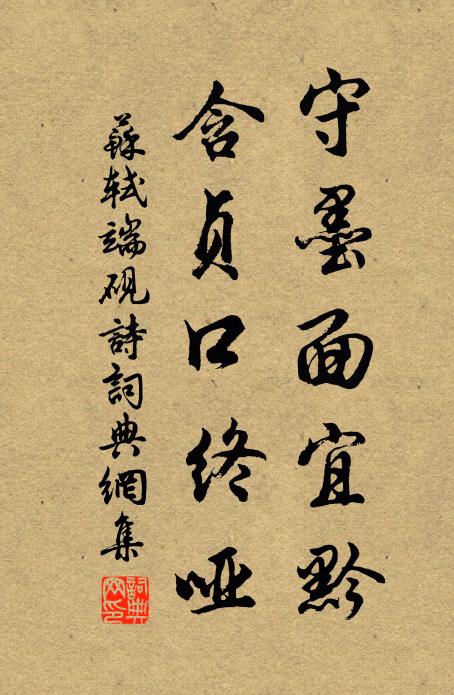 守墨面宜黔
含貞口終啞
蘇軾端硯詩詞典網集
詞典網印